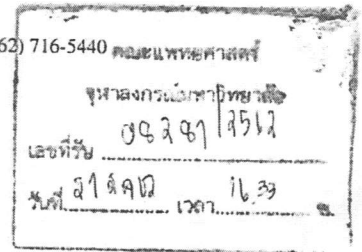 62) 716-5440
คณะแพทยศาสตร์
จุฬาลงกรณ์มหาวิทยาลัย
เลขที่รับ 08281/2562
วันที่ 21 เวลา 16.33 น.